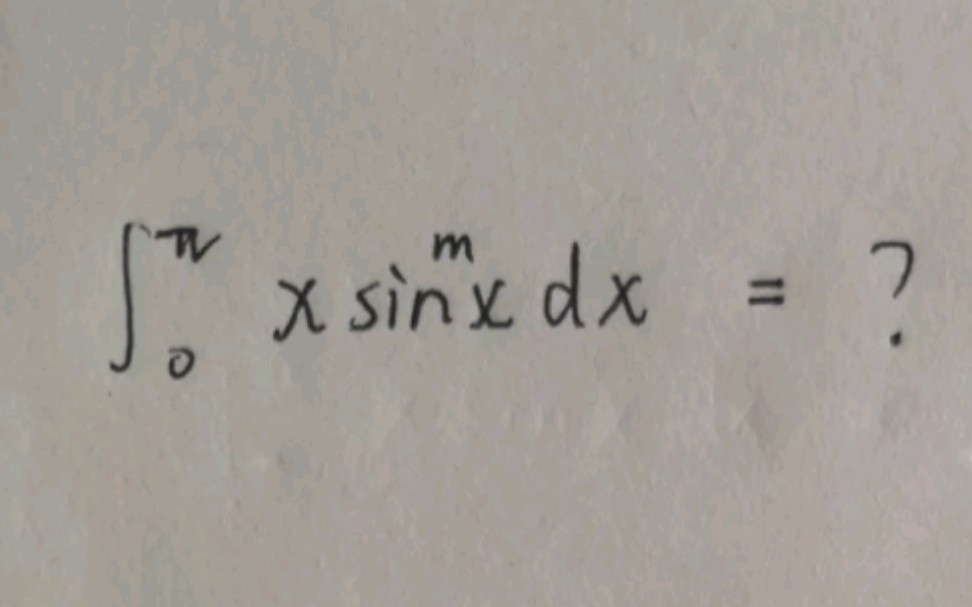 ∫₀^π x sin^m x dx = ?